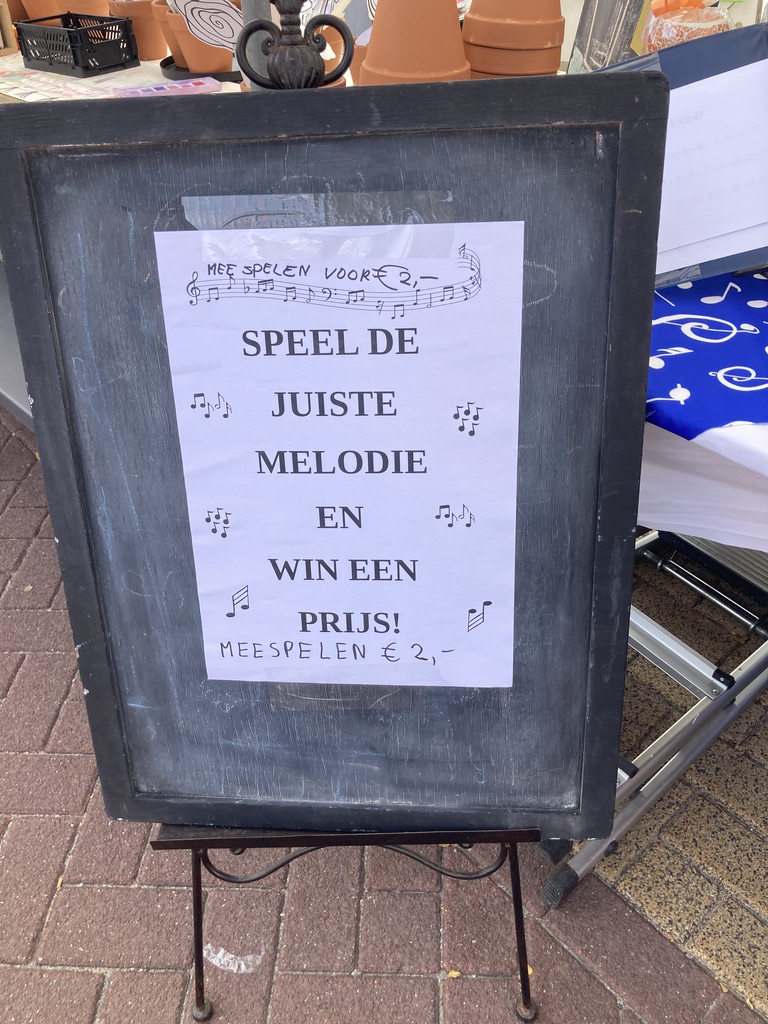 MEE SPELEN VOOR € 2,-
SPEEL DE
JUISTE
MELODIE
EN
WIN EEN
PRIJS!
MEESPELEN € 2,-